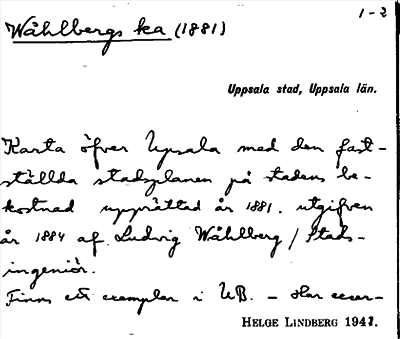 1-2
Wåhlbergs ka (1881)
Uppsala stad, Uppsala län.
Karta öfver Upsala med den fast-
ställda stadsplanen på stadens be-
kostnad upprättad år 1881. utgifven
år 1884 af Ludvig Wåhlberg / Stads-
ingeniör.
Finns ett exemplar i UB. - Har
HELGE LINDBERG 1941.